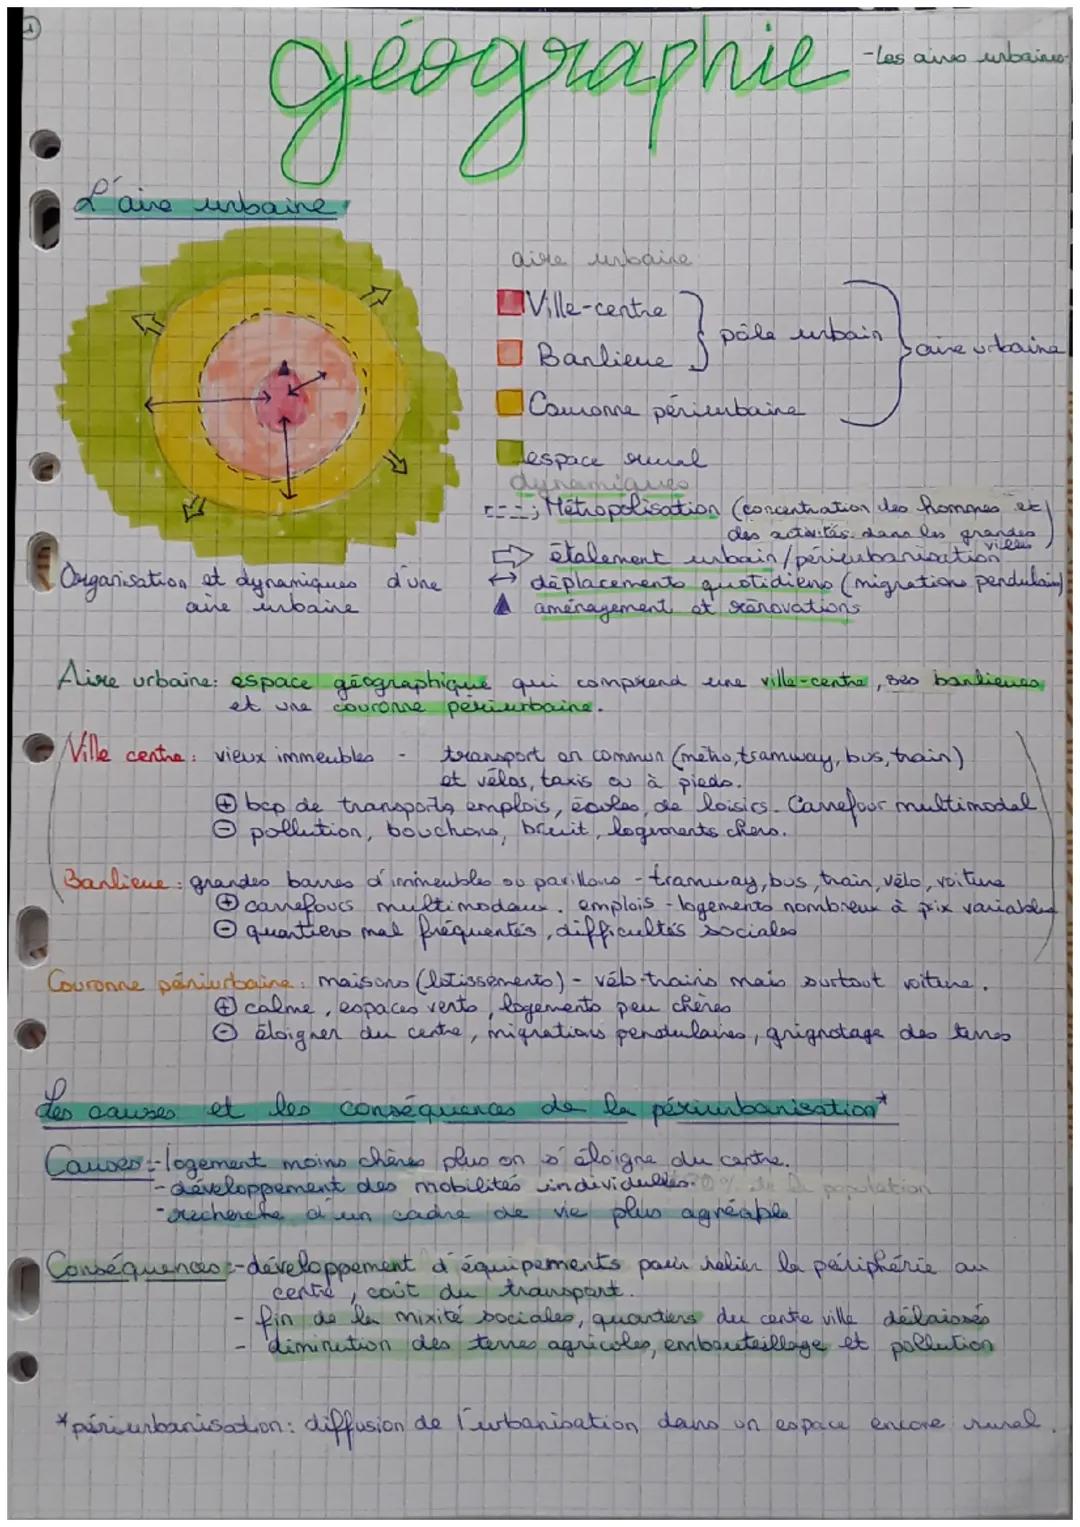 1
géographie
-Les aires urbaines-
L'aire urbaine
aire urbaine
Ville-centre
pôle urbain
aire urbaine
Banlieue
Couronne périurbaine
espace rural
dynamiques
Métropolisation (concentration des hommes et
des activités dans les grandes
villes
étalement urbain/périurbanisation
déplacements quotidiens (migrations pendulaires)
aménagement et rénovations
Organisation et dynamiques d'une
aire urbaine
Aire urbaine: espace géographique qui comprend une ville-centre, ses banlieues
et une couronne périurbaine.
Ville centre: vieux immeubles - transport en commun (métro, tramway, bus, train)
et vélos, taxis ou à pieds.
+ bcp de transports, emplois, écoles, de loisirs. Carrefour multimodal
- pollution, bouchons, bruit, logements chers.
Banlieue: grandes barres d'immeubles ou pavillons - tramway, bus, train, vélo, voiture
+ carrefours multimodaux. emplois - logements nombreux à prix variables
- quartiers mal fréquentés, difficultés sociales
Couronne périurbaine: maisons (lotissements) - vélo-trains mais surtout voiture.
+ calme, espaces verts, logements peu chères
- éloigner du centre, migrations pendulaires, grignotage des terres
Les causes et les conséquences de la périurbanisation*
Causes:-logement moins chères plus on s'éloigne du centre.
-développement des mobilités individuelles. % de la population
-recherche d'un cadre de vie plus agréable
Conséquences:-développement d'équipements pour relier la périphérie au
centre, coût du transport.
- fin de la mixité sociales, quartiers du centre ville délaissés
- diminution des terres agricoles, embouteillage et pollution
*périurbanisation: diffusion de l'urbanisation dans un espace encore rural.